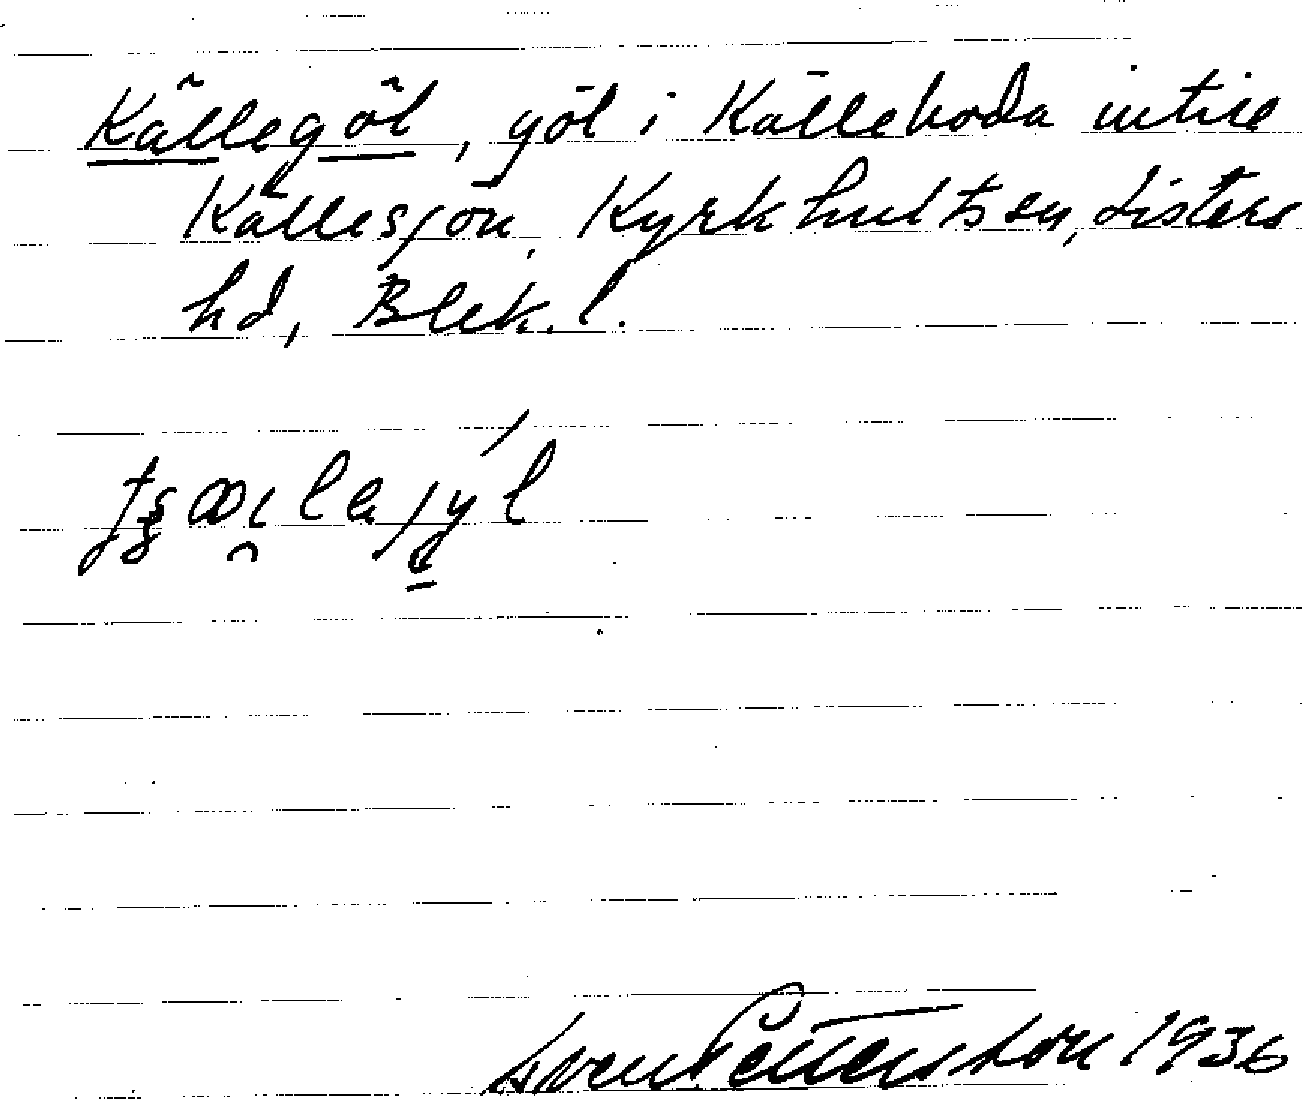 Källegöl, göl i Källeboda intill
Källesjön, Kyrkhults sn, Listers
hd, Blek. l.
Sven Pettersson 1936